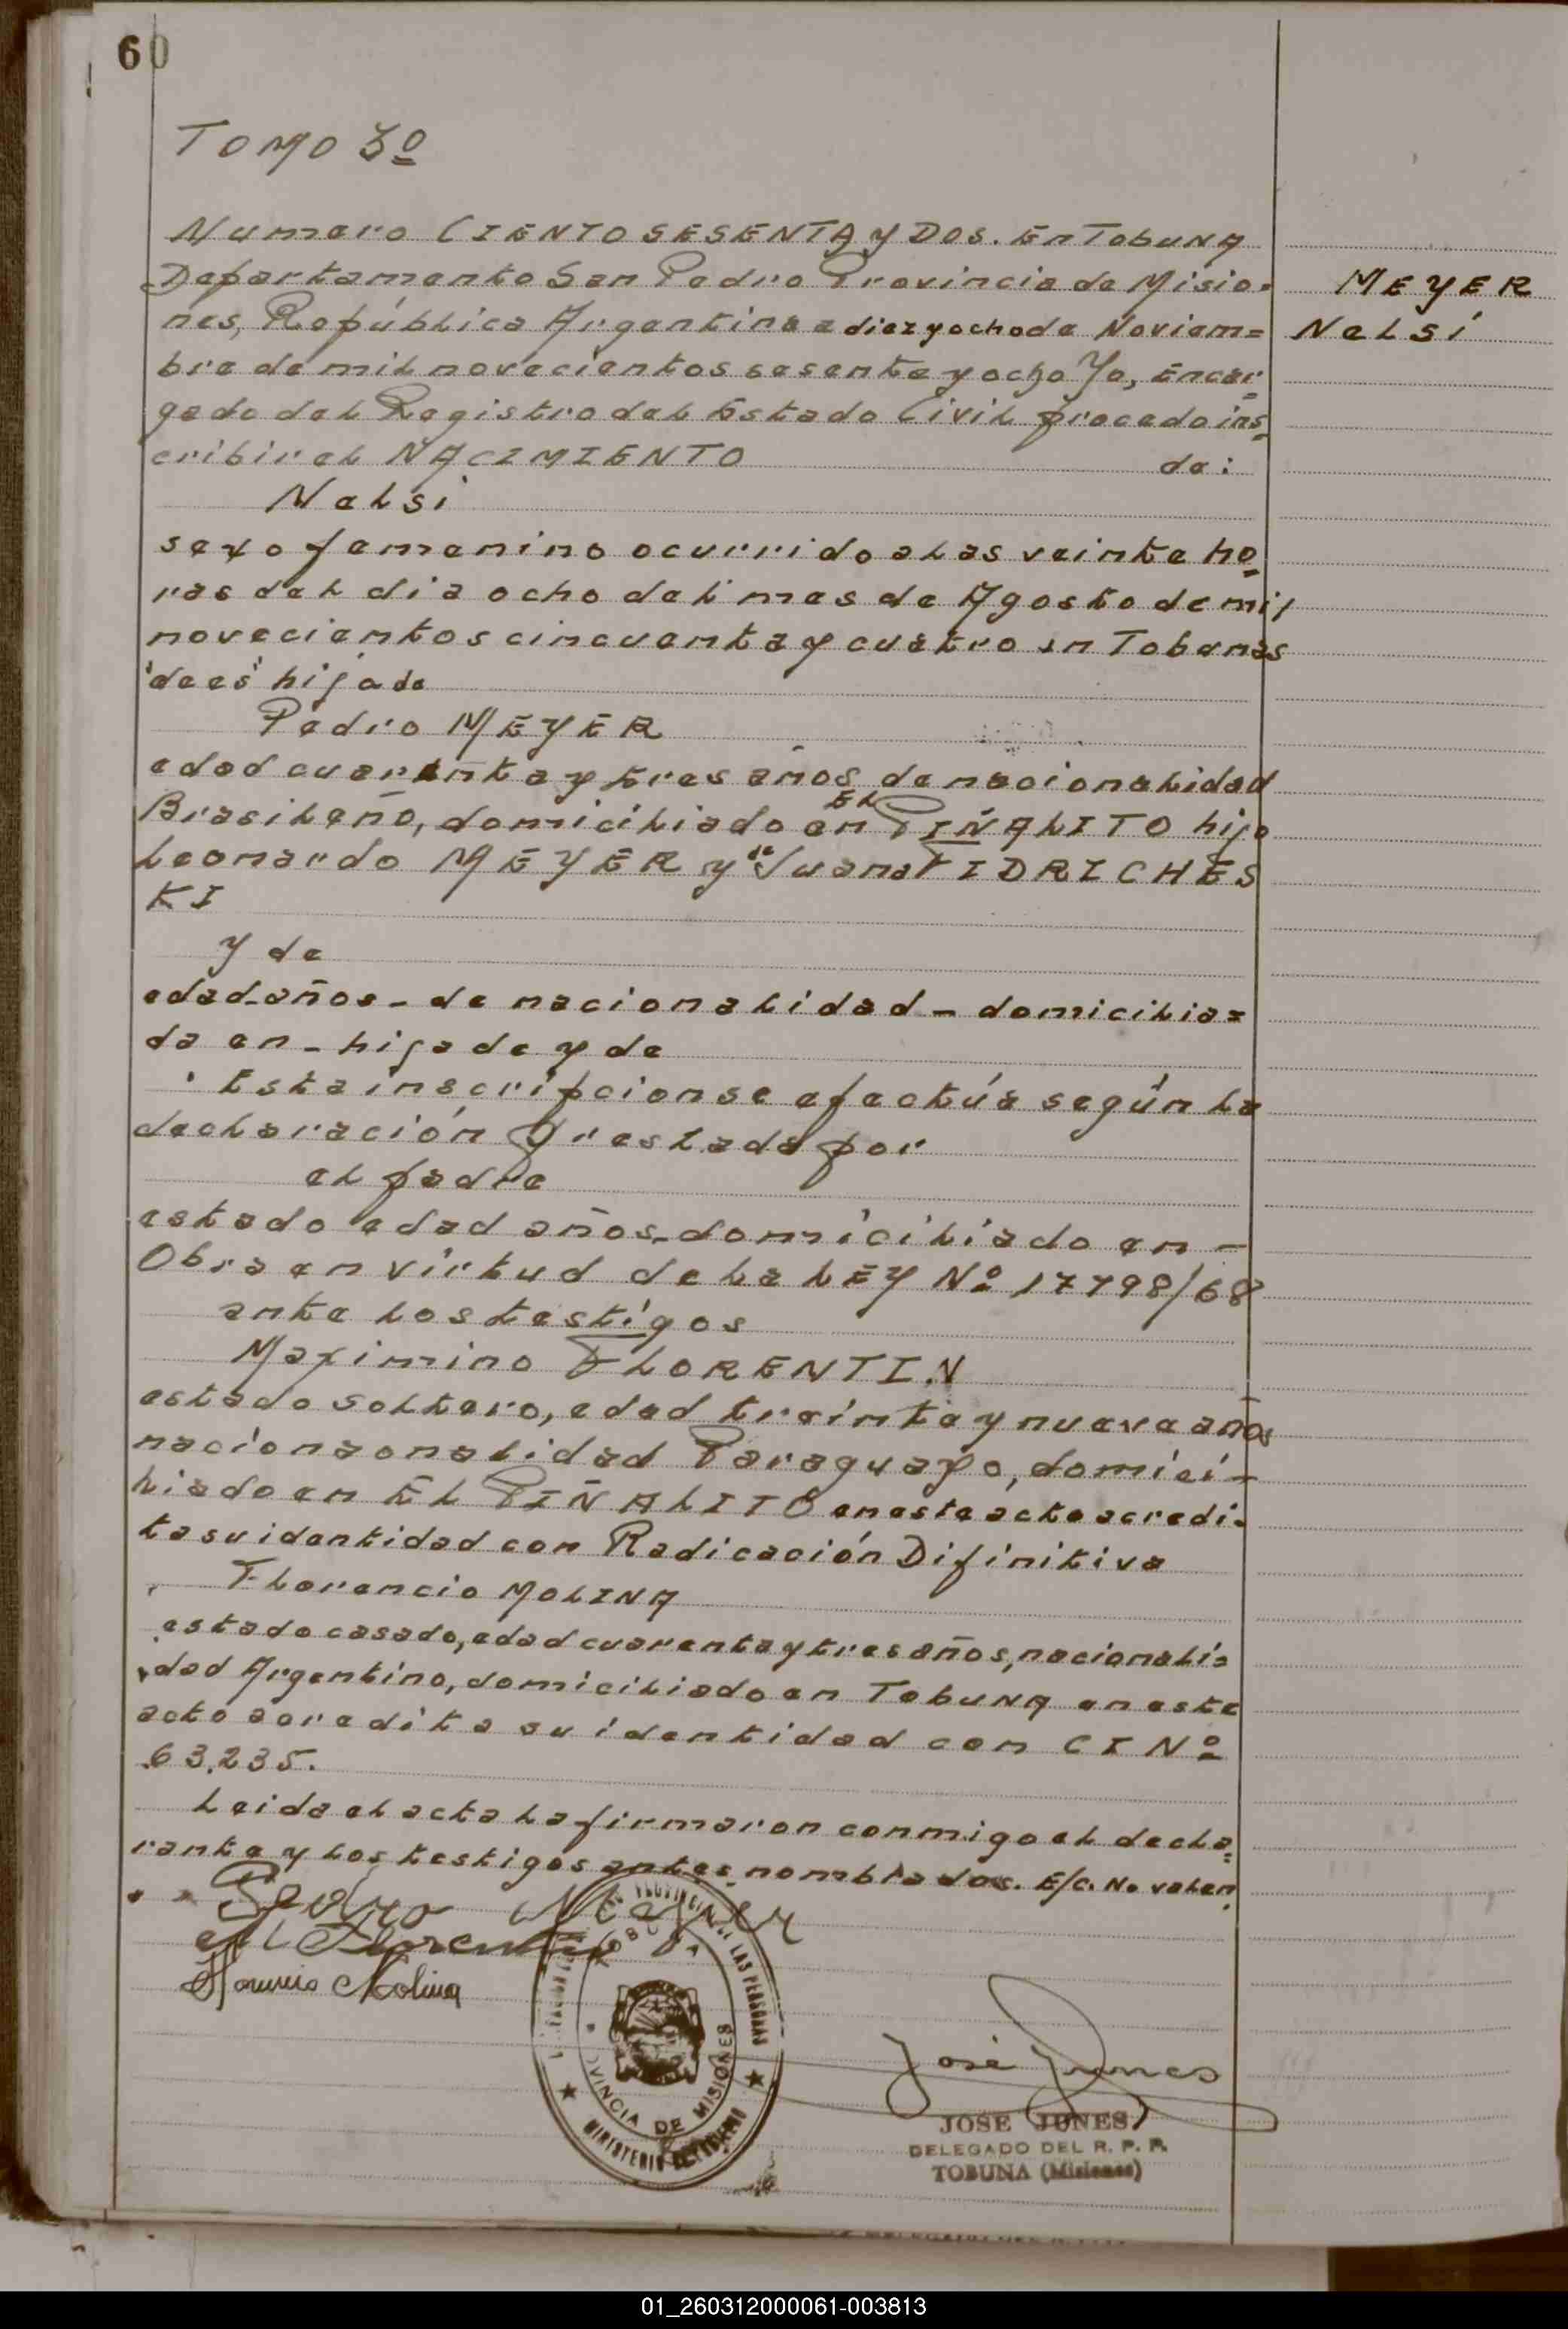 60
TOMO 3º
Numero CIENTO SESENTA y DOS. En TobuNA
Departamento San Pedro Provincia de Misio=
nes, República Argentina a diez y ocho de Noviem=
bre de mil novecientos sesenta y ocho Yo, Encar-
gado del Registro del Estado Civil procedo ins-
cribir el NACIMIENTO de:
Nelsi
MEYER
Nelsi
sexo femenino ocurrido a las veinte ho-
ras del dia ocho del mes de Agosto de mil
novecientos cincuenta y cuatro en Tobunas
'de es' hija de
Pedro MEYER
edad cuarenta y tres años de nacionalidad
Brasileño, domiciliado en EL PIÑALITO hijo
Leonardo MEYER y de Juana FIDRICHES
KI
y de
edad-años - de nacionalidad - domicilia=
da en - hija de y de
Esta inscripcion se efectúa según la
declaración Prestada por
el padre
estado edad años-domiciliado en -
Obra en virtud de la LEY Nº 17798/68
ante los testigos
Maximino FLORENTIN
estado soltero, edad treinta y nueve años
nacionaonalidad Paraguayo, domici-
liado en EL PIÑALITO en este acto acredi-
ta su identidad con Radicación Difinitiva
Florencio MOLINA
estado casado, edad cuarenta y tres años, nacionali=
dad Argentino, domiciliado en TobuNA en este
acto acredita su identidad con CI Nº
63.235.
Leida el acta la firmaron conmigo el decla=
rante y los testigos antes nombrados. E/C. No valen
Pedro Meyer
M Florentin
Florencio Molina
LAS PERSONAS
PROVINCIA DE MISIONES
MINISTERIO DE GOBIERNO
José Junes
JOSE JUNES
DELEGADO DEL R. P. P.
TOBUNA (Misiones)
01_260312000061-003813